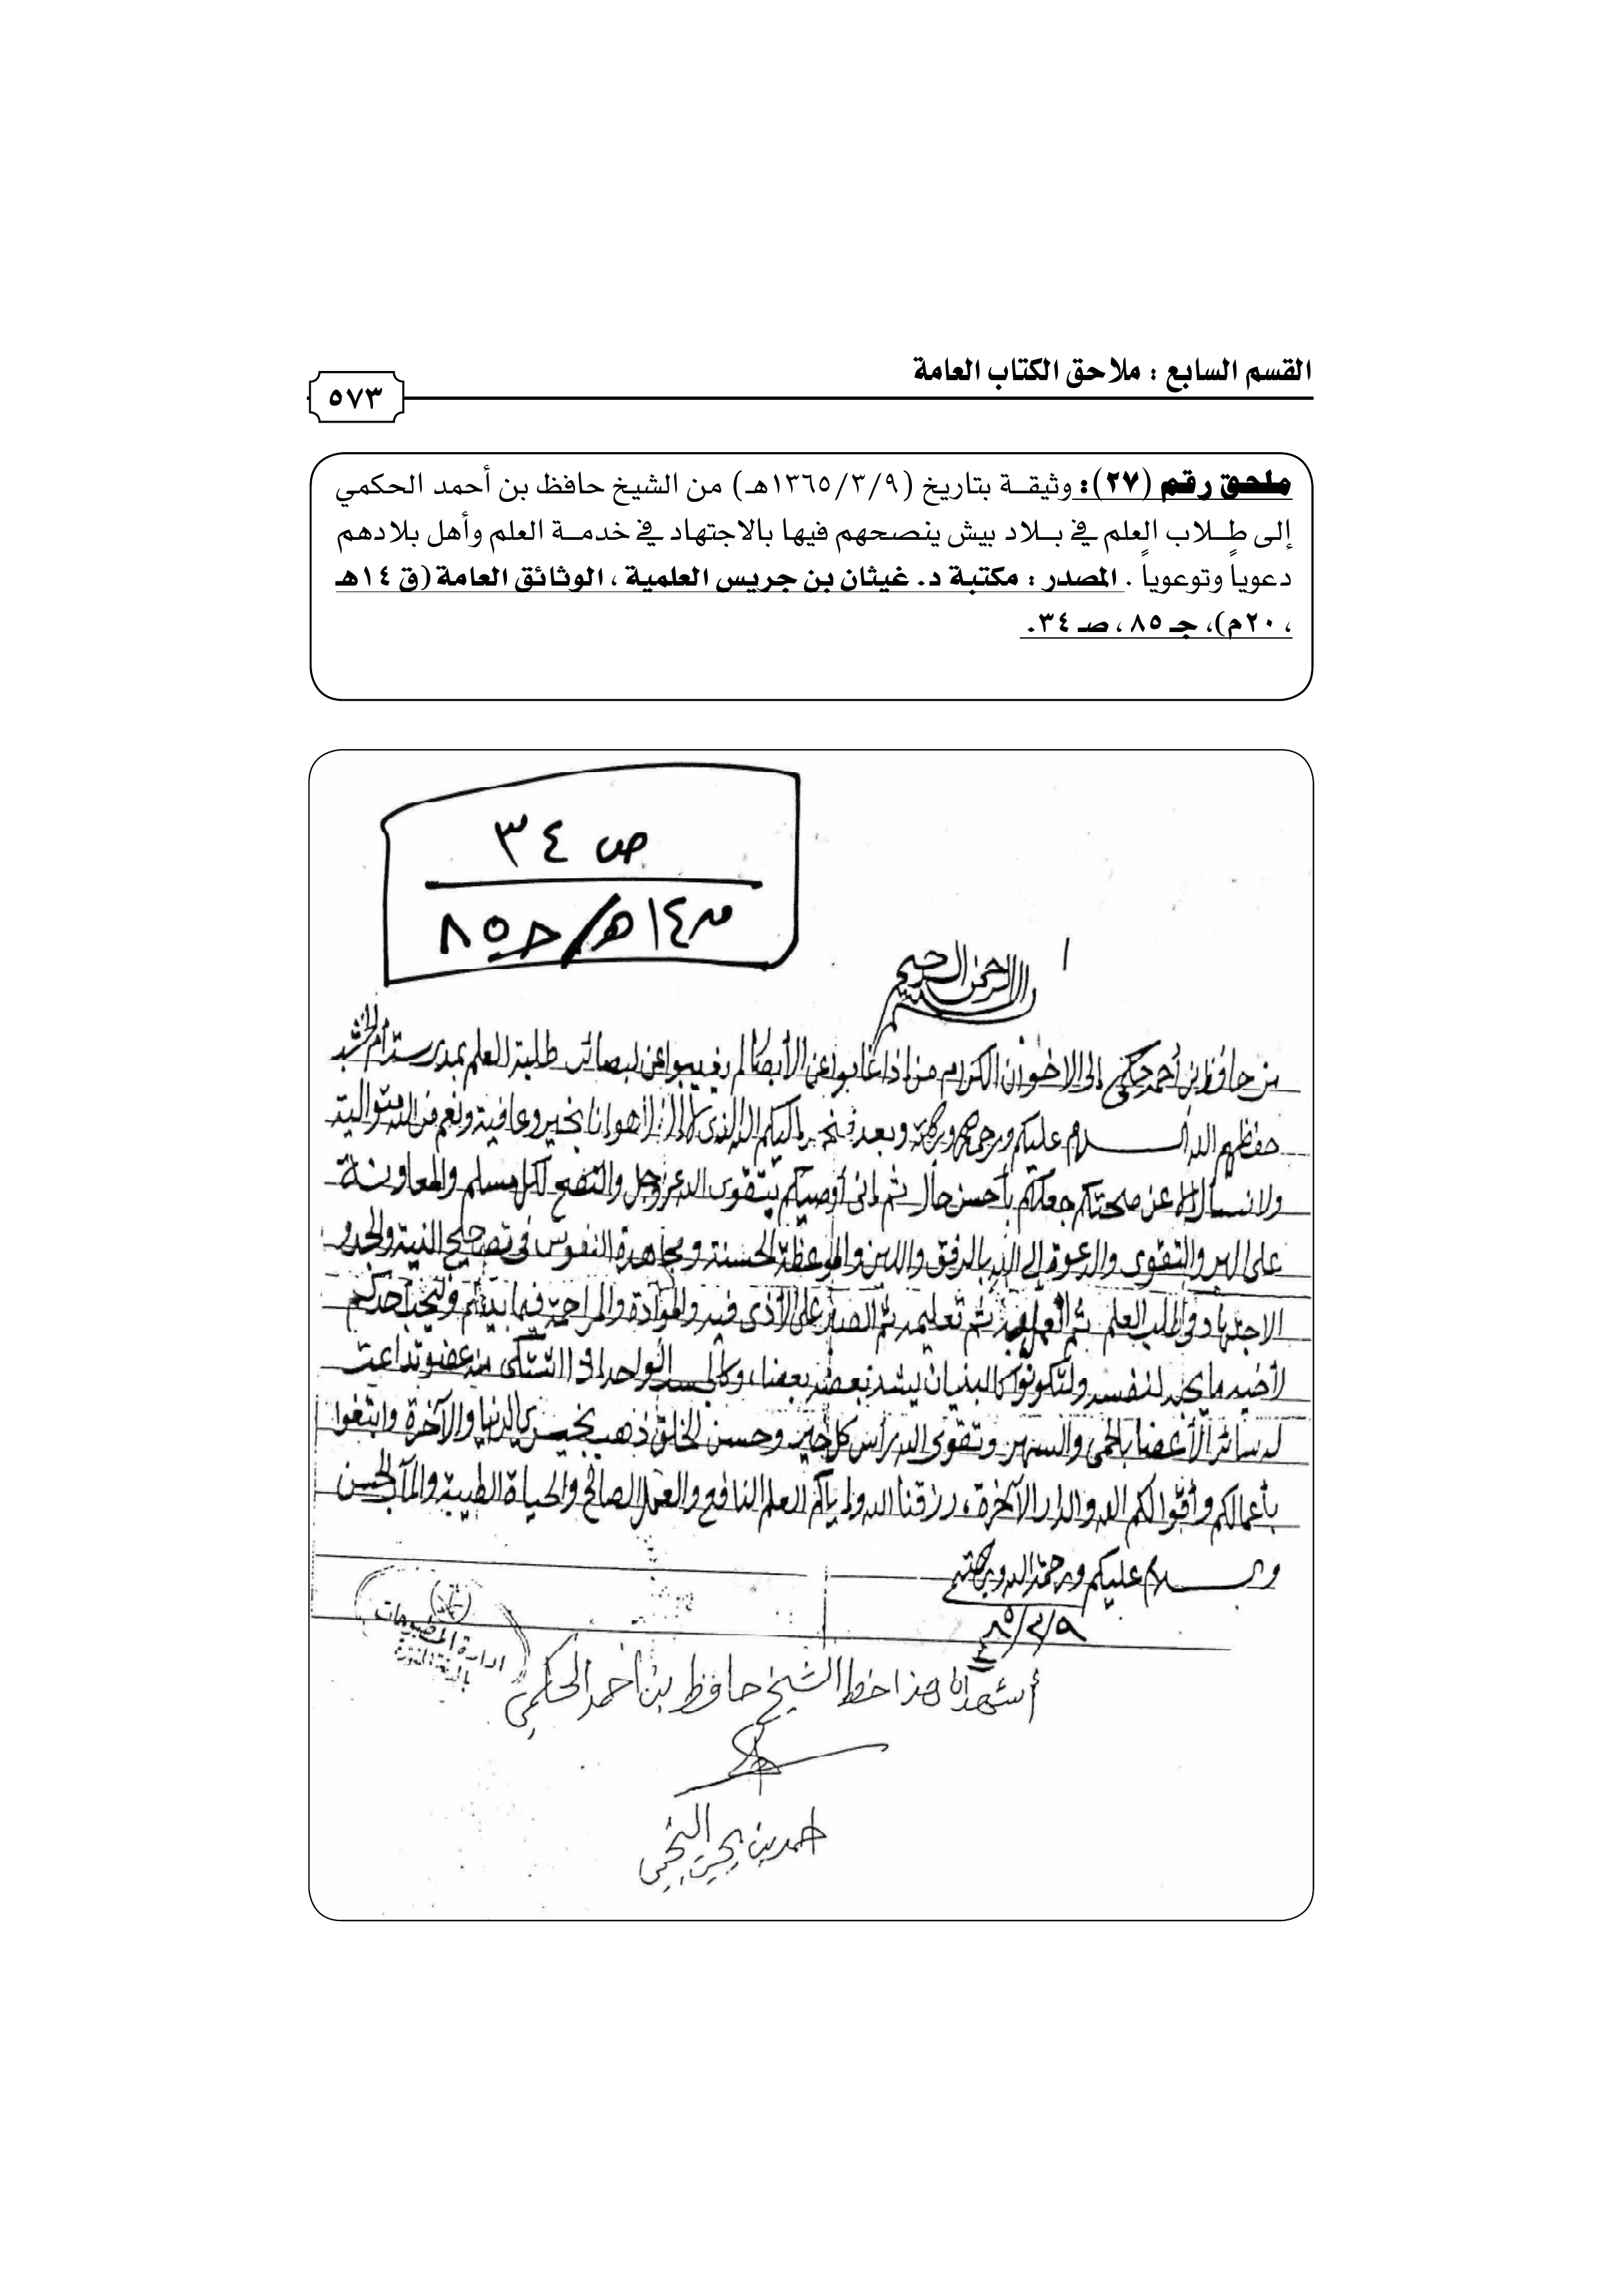 القسم السابع : ملاحق الكتاب العامة
٥٧٣
ملحق رقم (٢٧): وثيقة بتاريخ (١٣٦٥/٣/٩هـ) من الشيخ حافظ بن أحمد الحكمي
إلى طلاب العلم في بلاد بيش ينصحهم فيها بالاجتهاد في خدمة العلم وأهل بلادهم
دعوياً وتوعوياً . المصدر : مكتبة د. غيثان بن جريس العلمية ، الوثائق العامة (ق ١٤هـ
، ٢٠م)، جـ ٨٥ ، صـ ٣٤.
ص ٣٤
ق١٤هـ/ جـ٨٥
بسم الله الرحمن الرحيم
من حافظ بن أحمد حكمي إلى الاخوان الكرام من إذا غابوا عن الأبصار لم يغيبوا عن البصائر طلبة العلم بمدرسة أم الخشب
حفظهم الله السلام عليكم ورحمة الله وبركاته وبعد فنحمد إليكم الله الذي لا إله إلا هو إنا بخير وعافية ونعم من الله متوالية
ولا نسأل إلا عن صحتكم جعلكم بأحسن حال ثم إني أوصيكم بتقوى الله عز وجل والنصح لكل مسلم والمعاونة
على البر والتقوى والدعوة إلى الله بالرفق واللين والموعظة الحسنة ومجاهدة النفوس في تصحيح النية والجد و
الاجتهاد في طلب العلم ثم العمل به ثم تعليمه ثم الصبر على الأذى فيه والموادة والمراحمة فيما بينكم وليحب أحدكم
لأخيه ما يحب لنفسه ولتكونوا كالبنيان يشد بعضه بعضا، وكالجسد الواحد إذا اشتكى منه عضو تداعت
له سائر الأعضا بالحمى والسهر وتقوى الله رأس كل خير وحسن الخلق ذهب بخيري الدنيا والآخرة وابتغوا
بأعمالكم وأقوالكم الله والدار الآخرة، رزقنا الله وإياكم العلم النافع والعمل الصالح والحياة الطيبة والمآل الحسن
والسلام عليكم ورحمة الله وبركاته
ادارة المطبوعات
أشهد أن هذا خط الشيخ حافظ بن أحمد الحكمي
أحمد بن يحيى النجمي